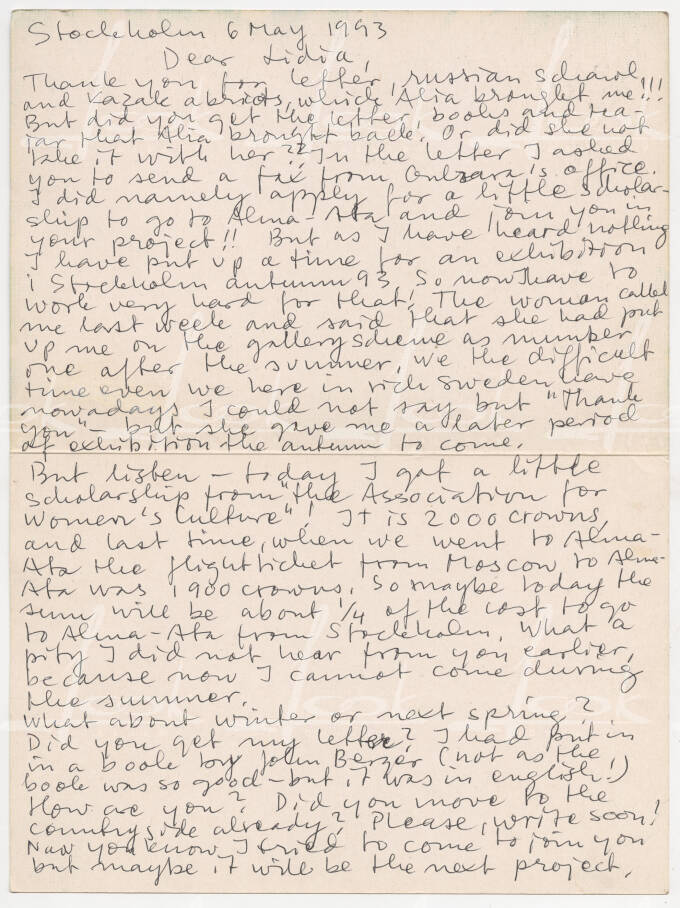 Stockholm 6 May 1993
Dear Lidia,
Thank you for letter, russian schawl,
and Kazak abricots, which Alia brought me!!!
But did you get the letter, books and
that Alia brought back! Or did she not
take it with her?? In the letter I asked
you to send a fax from office.
I did namely apply for a little scholar-
ship to go to Alma-Ata and join you in
your project!! But as I have heard nothing
I have put up a time for an exhibition
i Stockholm autumn 93. So now I have to
work very hard for that! The woman called
me last week and said that she had put
up me on the gallery scheme as number
one after the summer, we the difficult
time even we here in rich Sweden have
nowadays I could not say but "Thank
you" – but she gave me a later period
of exhibition the autumn to come.
But listen – today I got a little
scholarship from "the Association for
Women's Culture"! It is 2000 crowns,
and last time, when we went to Alma-
Ata the flightticket from Moscow to Alma-
Ata was 1900 crowns. So maybe today the
sum will be about 1/4 of the cost to go
to Alma-Ata from Stockholm. What a
pity I did not hear from you earlier,
because now I cannot come during
the summer.
What about winter or next spring?
Did you get my letter? I had put in
in a book by John Berger (not as the
book was so good – but it was in english!)
How are you? Did you move to the
countryside already? Please, write soon!
Now you know I tried to come to join you
but maybe it will be the next project.